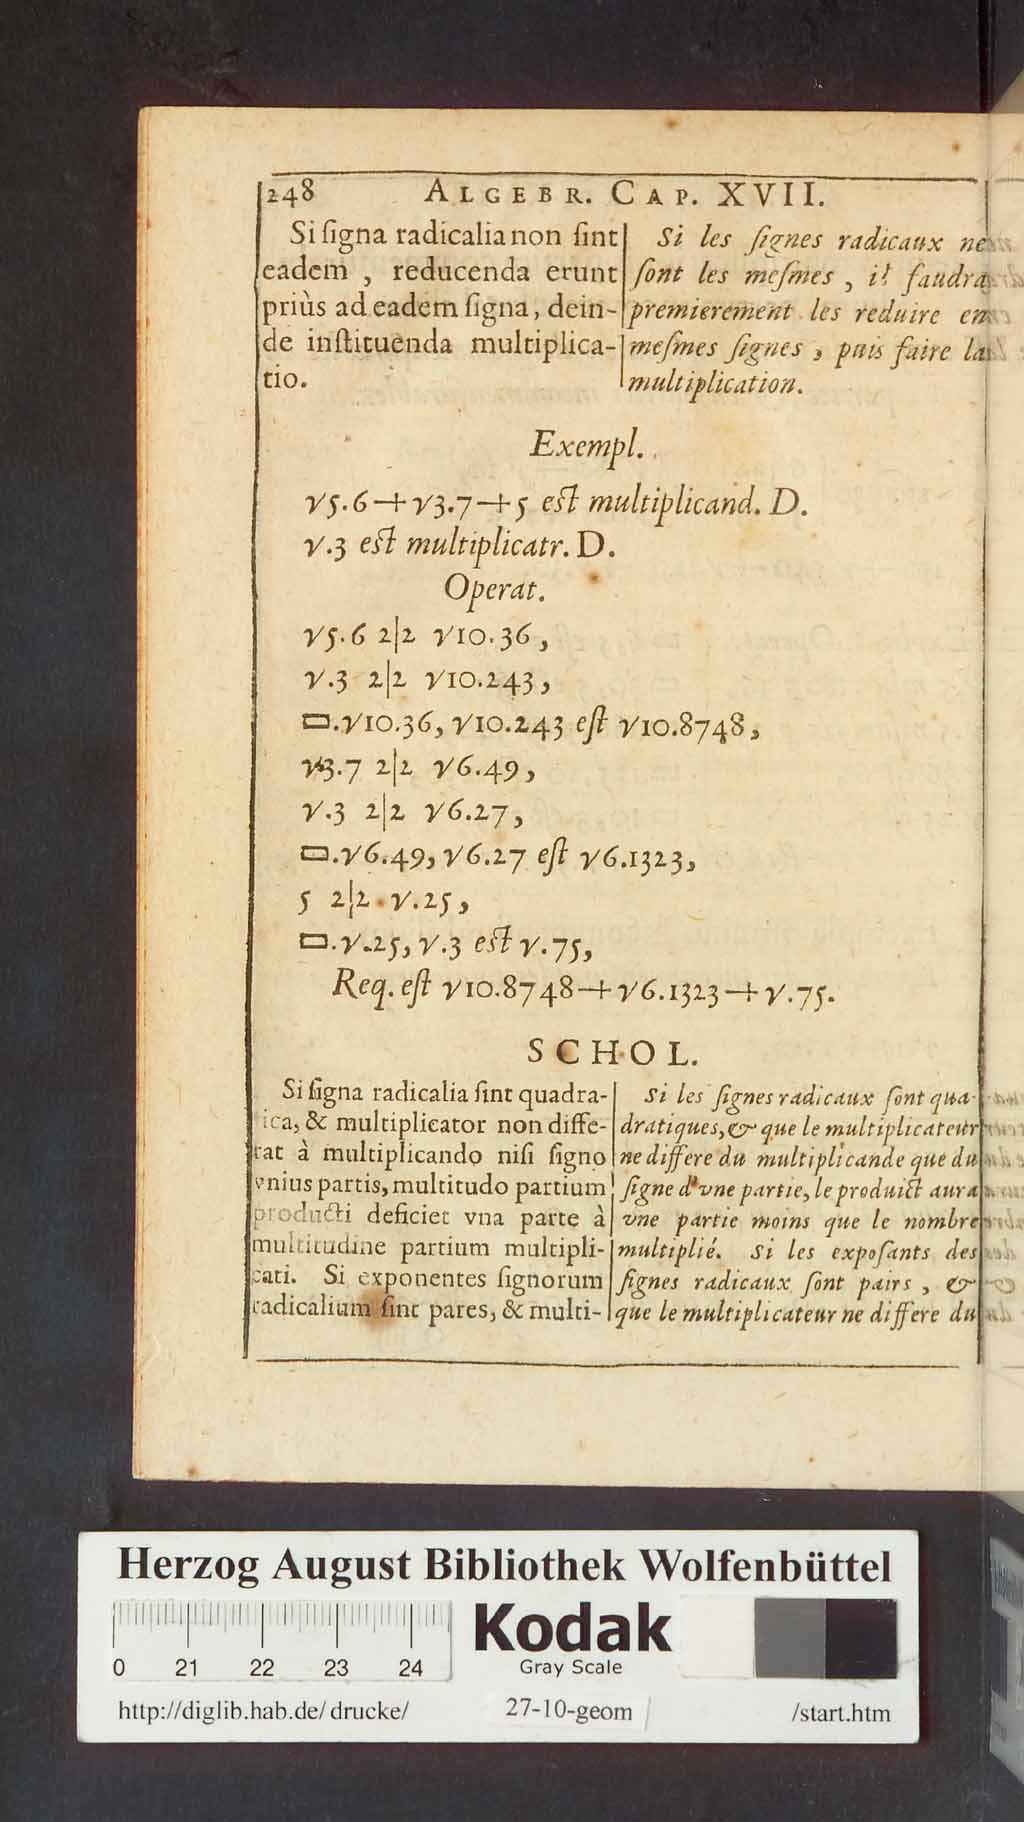 248 ALGEBR. CAP. XVII.
Si ſigna radicalia non ſint
eadem , reducenda erunt
priùs ad eadem ſigna, dein-
de inſtituēnda multiplica-
tio.
Si les ſignes radicaux ne
ſont les meſmes , il faudra
premierement les reduire en
meſmes ſignes , puis faire la
multiplication.
Exempl.
√5.6+√3.7+5 eſt multiplicand. D.
√.3 eſt multiplicatr. D.
Operat.
√5.6 2|2 √10.36,
√.3 2|2 √10.243,
▭.√10.36, √10.243 eſt √10.8748,
√3.7 2|2 √6.49,
√.3 2|2 √6.27,
▭.√6.49, √6.27 eſt √6.1323,
5 2|2 √.25,
▭.√.25, √.3 eſt √.75,
Req. eſt √10.8748+√6.1323+√.75.
SCHOL.
Si ſigna radicalia ſint quadra-
tica, & multiplicator non diffe-
rat à multiplicando niſi ſigno
vnius partis, multitudo partium
producti deficiet vna parte à
multitudine partium multipli-
cati. Si exponentes ſignorum
radicalium ſint pares, & multi-
Si les ſignes radicaux ſont qua-
dratiques, & que le multiplicateur
ne differe du multiplicande que du
ſigne d'vne partie, le produict aura
vne partie moins que le nombre
multiplié. Si les expoſants des
ſignes radicaux ſont pairs , &
que le multiplicateur ne differe du
Herzog August Bibliothek Wolfenbüttel
0 21 22 23 24
Kodak
Gray Scale
http://diglib.hab.de/drucke/ 27-10-geom /start.htm